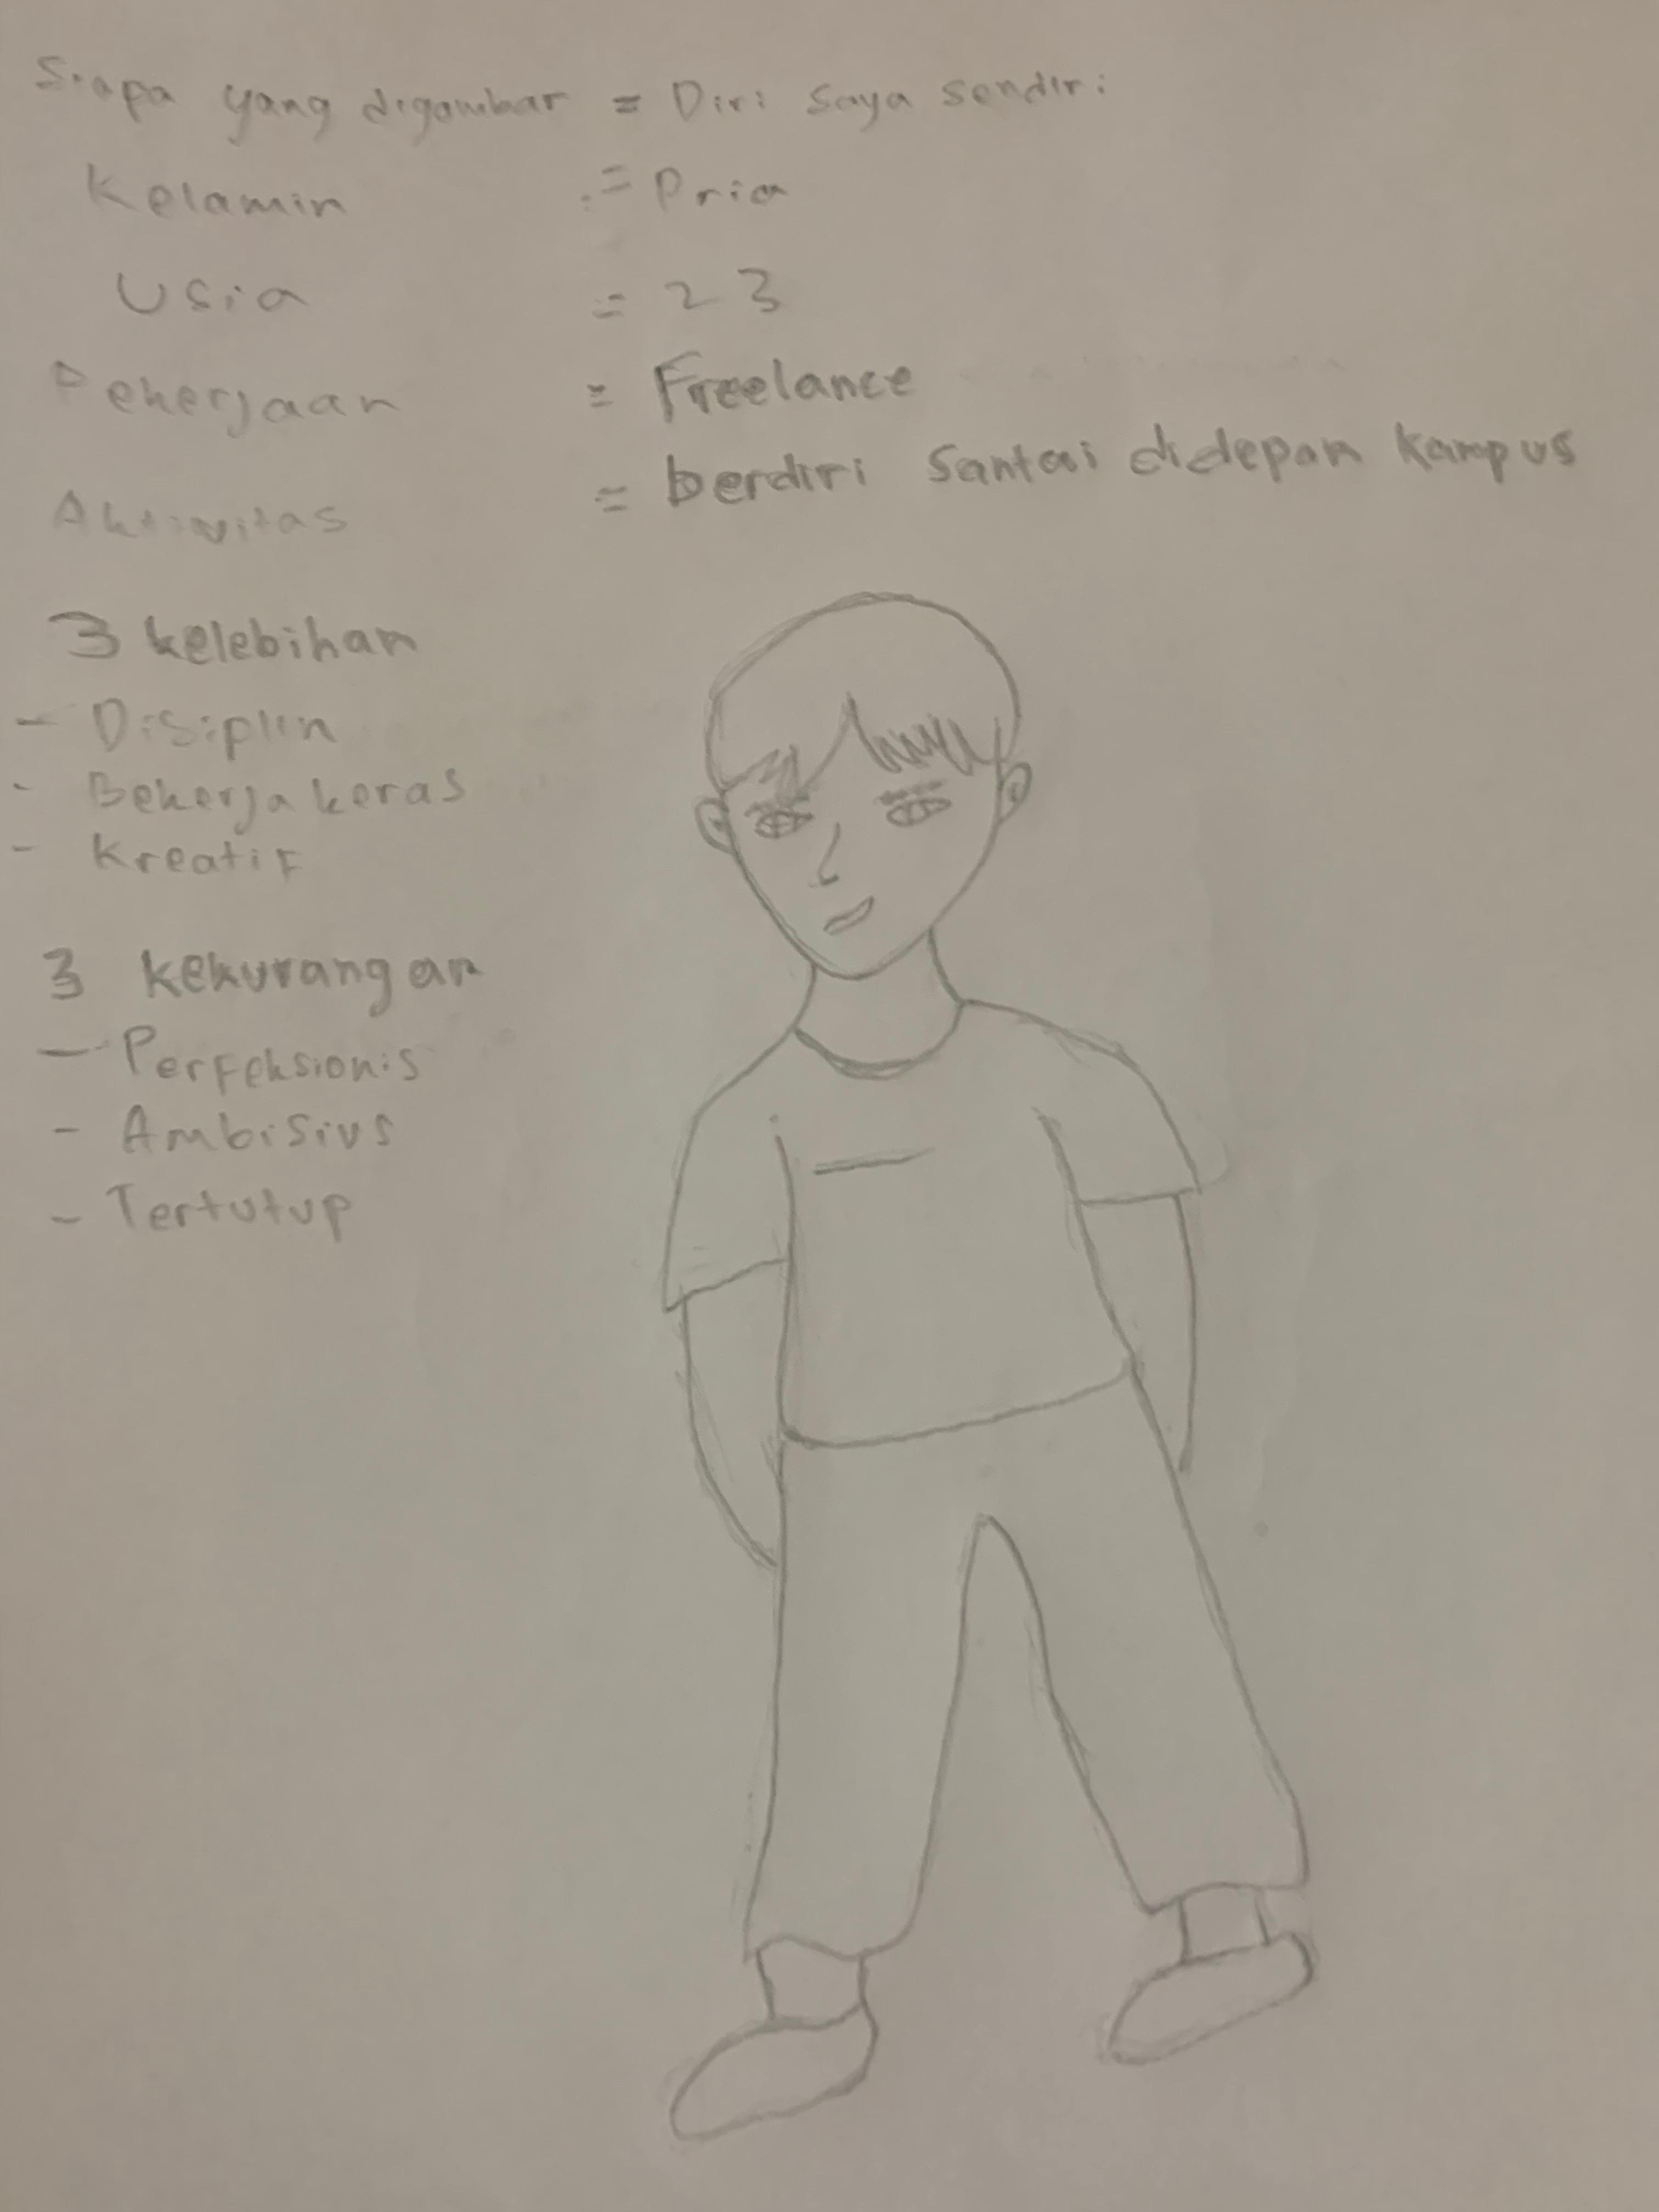 Siapa yang digambar = Diri saya sendiri
Kelamin = Pria
Usia = 23
Pekerjaan = Freelance
Aktivitas = berdiri santai didepan kampus
3 kelebihan
- Disiplin
- Bekerja keras
- Kreatif
3 kekurangan
- Perfeksionis
- Ambisius
- Tertutup